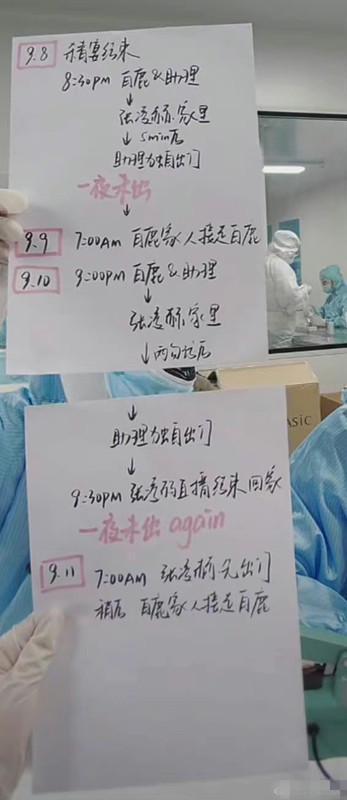 9.8 任嘉伦结束
8:30pm 白鹿&助理
↓
张凌赫家里
↓ 5min后
助理独自出门
一夜未出
↓
9.9 7:00AM 白鹿家人接走白鹿
9.10 9:00pm 白鹿&助理
↓
张凌赫家里
↓ 两句话后
↓
助理独自出门
↓
9:30pm 张凌赫直播结束回家
一夜未出 again
↓
9.11 7:00AM 张凌赫先出门
稍后 白鹿家人接走白鹿
ASIC